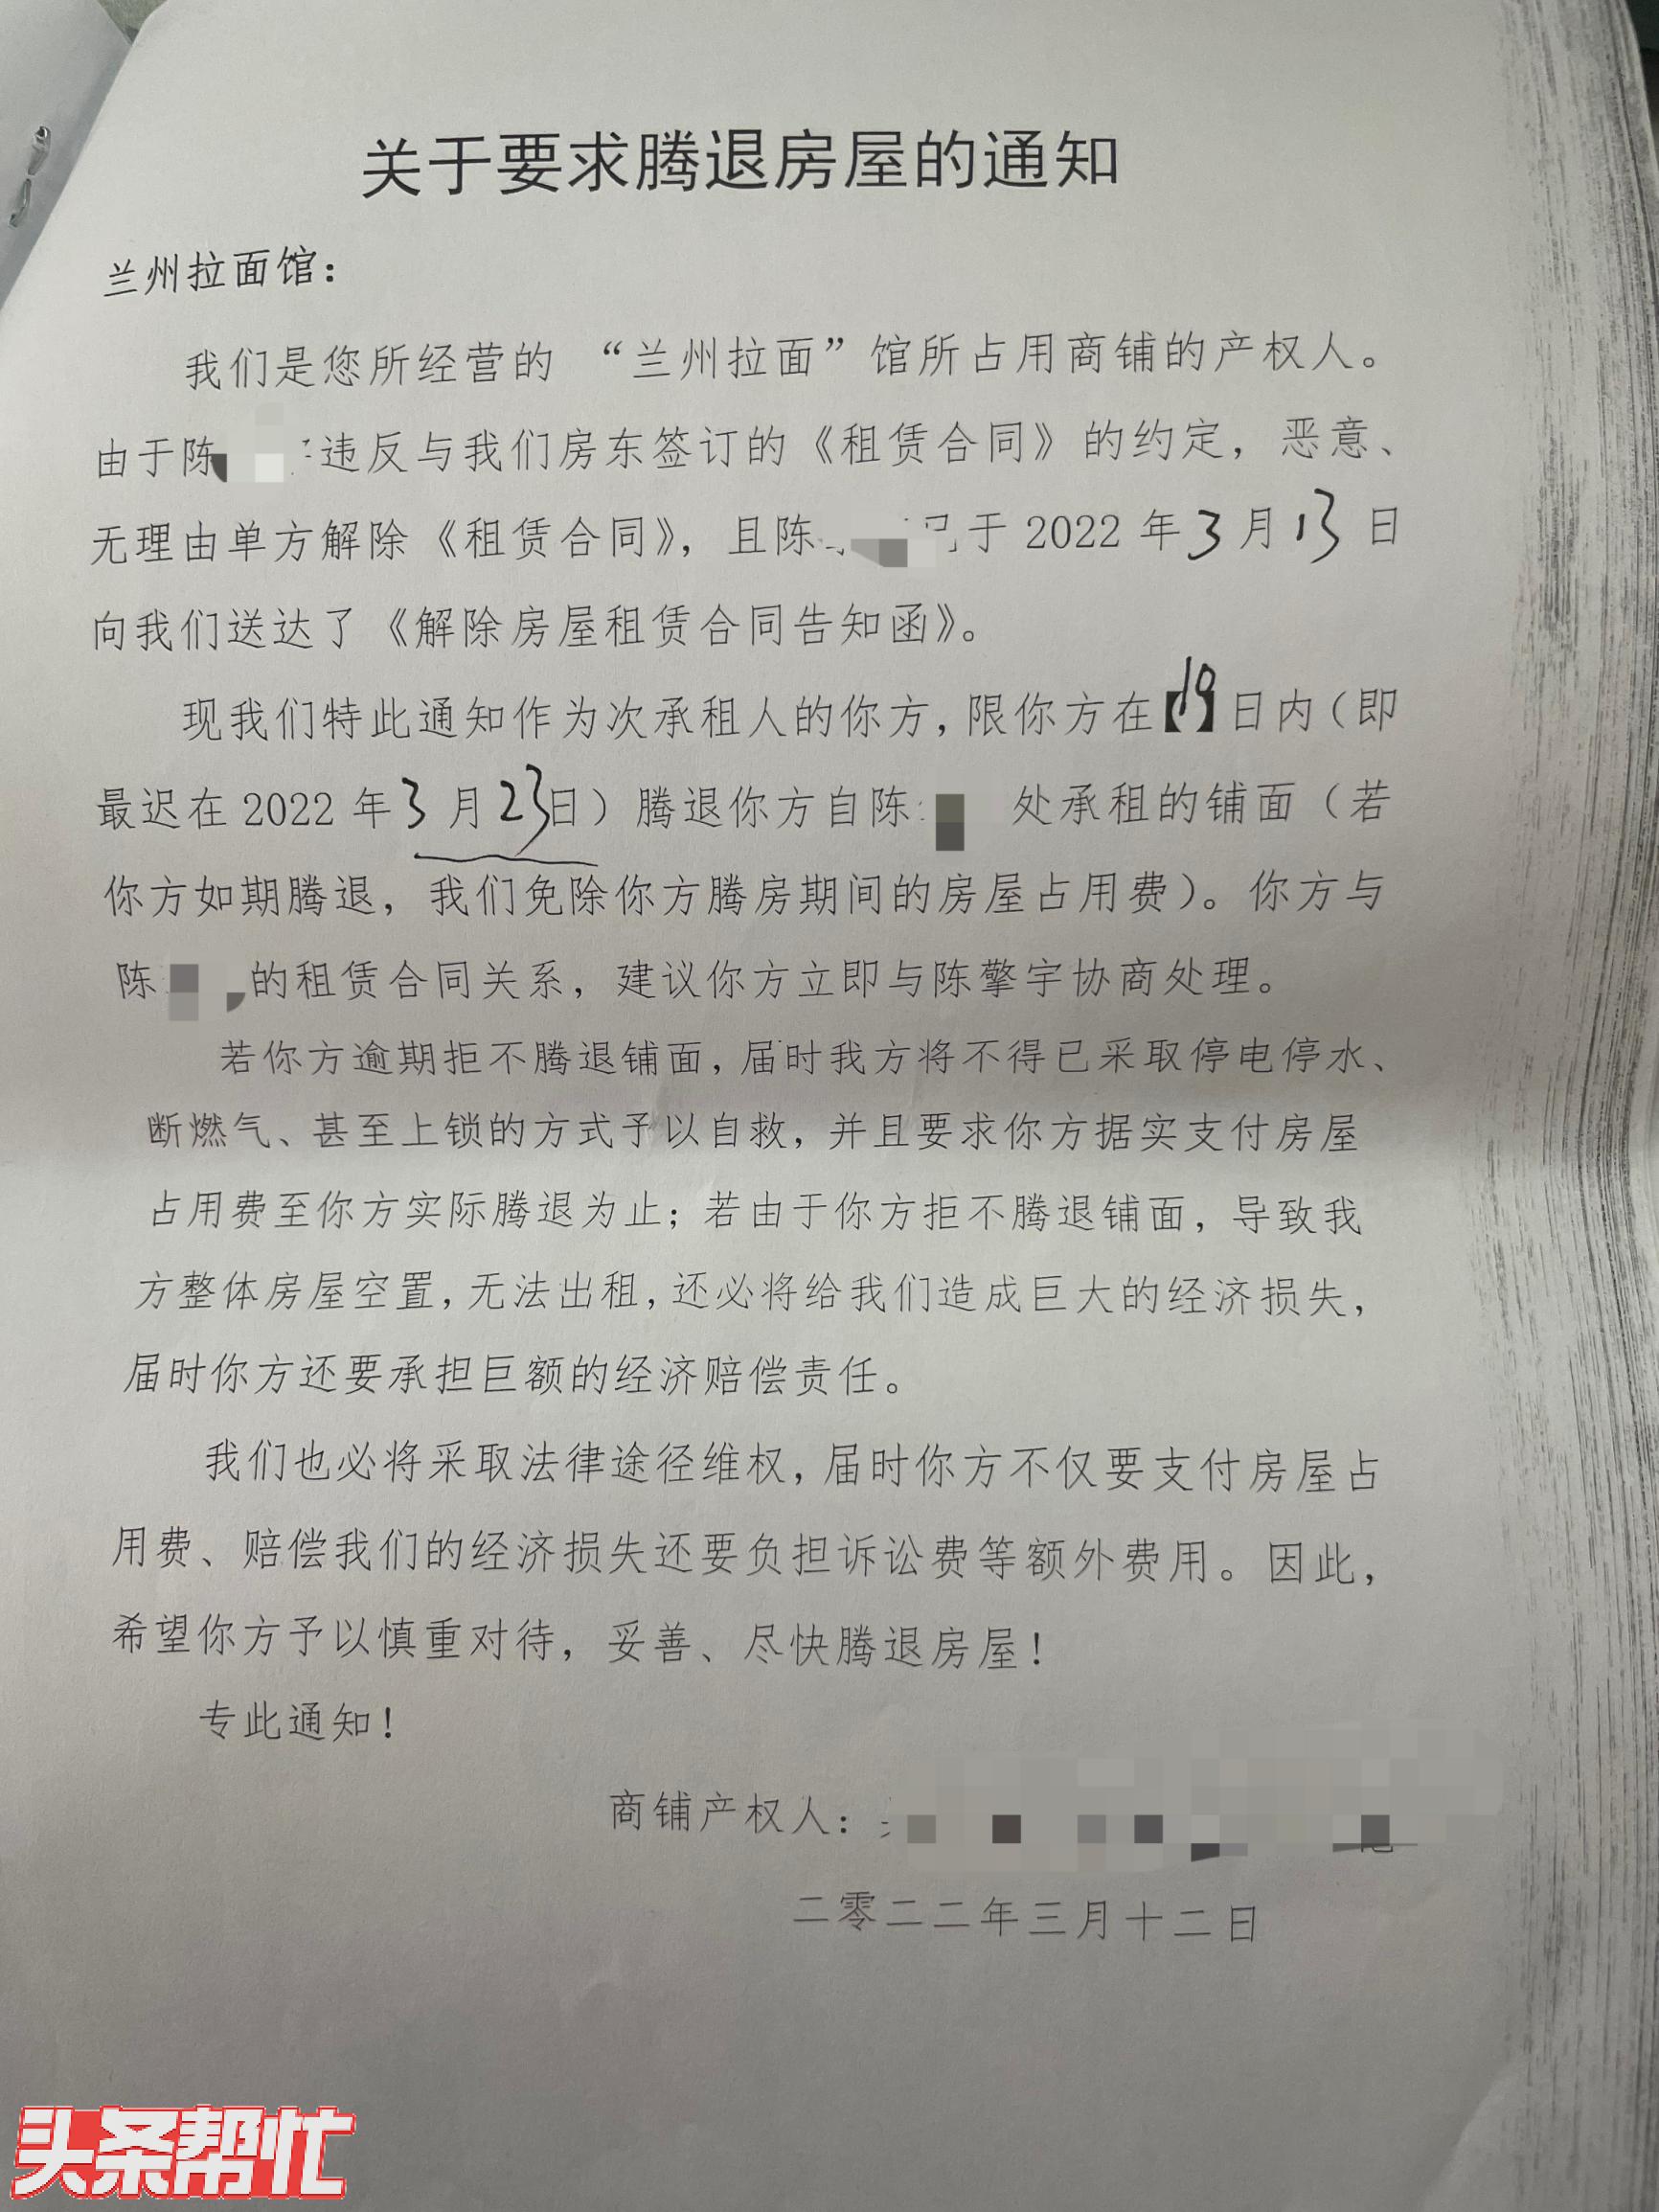 关于要求腾退房屋的通知
兰州拉面馆：
我们是您所经营的 “兰州拉面”馆所占用商铺的产权人。
由于陈 违反与我们房东签订的《租赁合同》的约定，恶意、
无理由单方解除《租赁合同》，且陈 已于 2022 年 3 月 13 日
向我们送达了《解除房屋租赁合同告知函》。
现我们特此通知作为次承租人的你方，限你方在【10】日内（即
最迟在 2022 年 3 月 23 日）腾退你方自陈 处承租的铺面（若
你方如期腾退，我们免除你方腾房期间的房屋占用费）。你方与
陈 的租赁合同关系，建议你方立即与陈擎宇协商处理。
若你方逾期拒不腾退铺面，届时我方将不得已采取停电停水、
断燃气、甚至上锁的方式予以自救，并且要求你方据实支付房屋
占用费至你方实际腾退为止；若由于你方拒不腾退铺面，导致我
方整体房屋空置，无法出租，还必将给我们造成巨大的经济损失，
届时你方还要承担巨额的经济赔偿责任。
我们也必将采取法律途径维权，届时你方不仅要支付房屋占
用费、赔偿我们的经济损失还要负担诉讼费等额外费用。因此，
希望你方予以慎重对待，妥善、尽快腾退房屋！
专此通知！
商铺产权人：
二零二二年三月十二日
头条帮忙